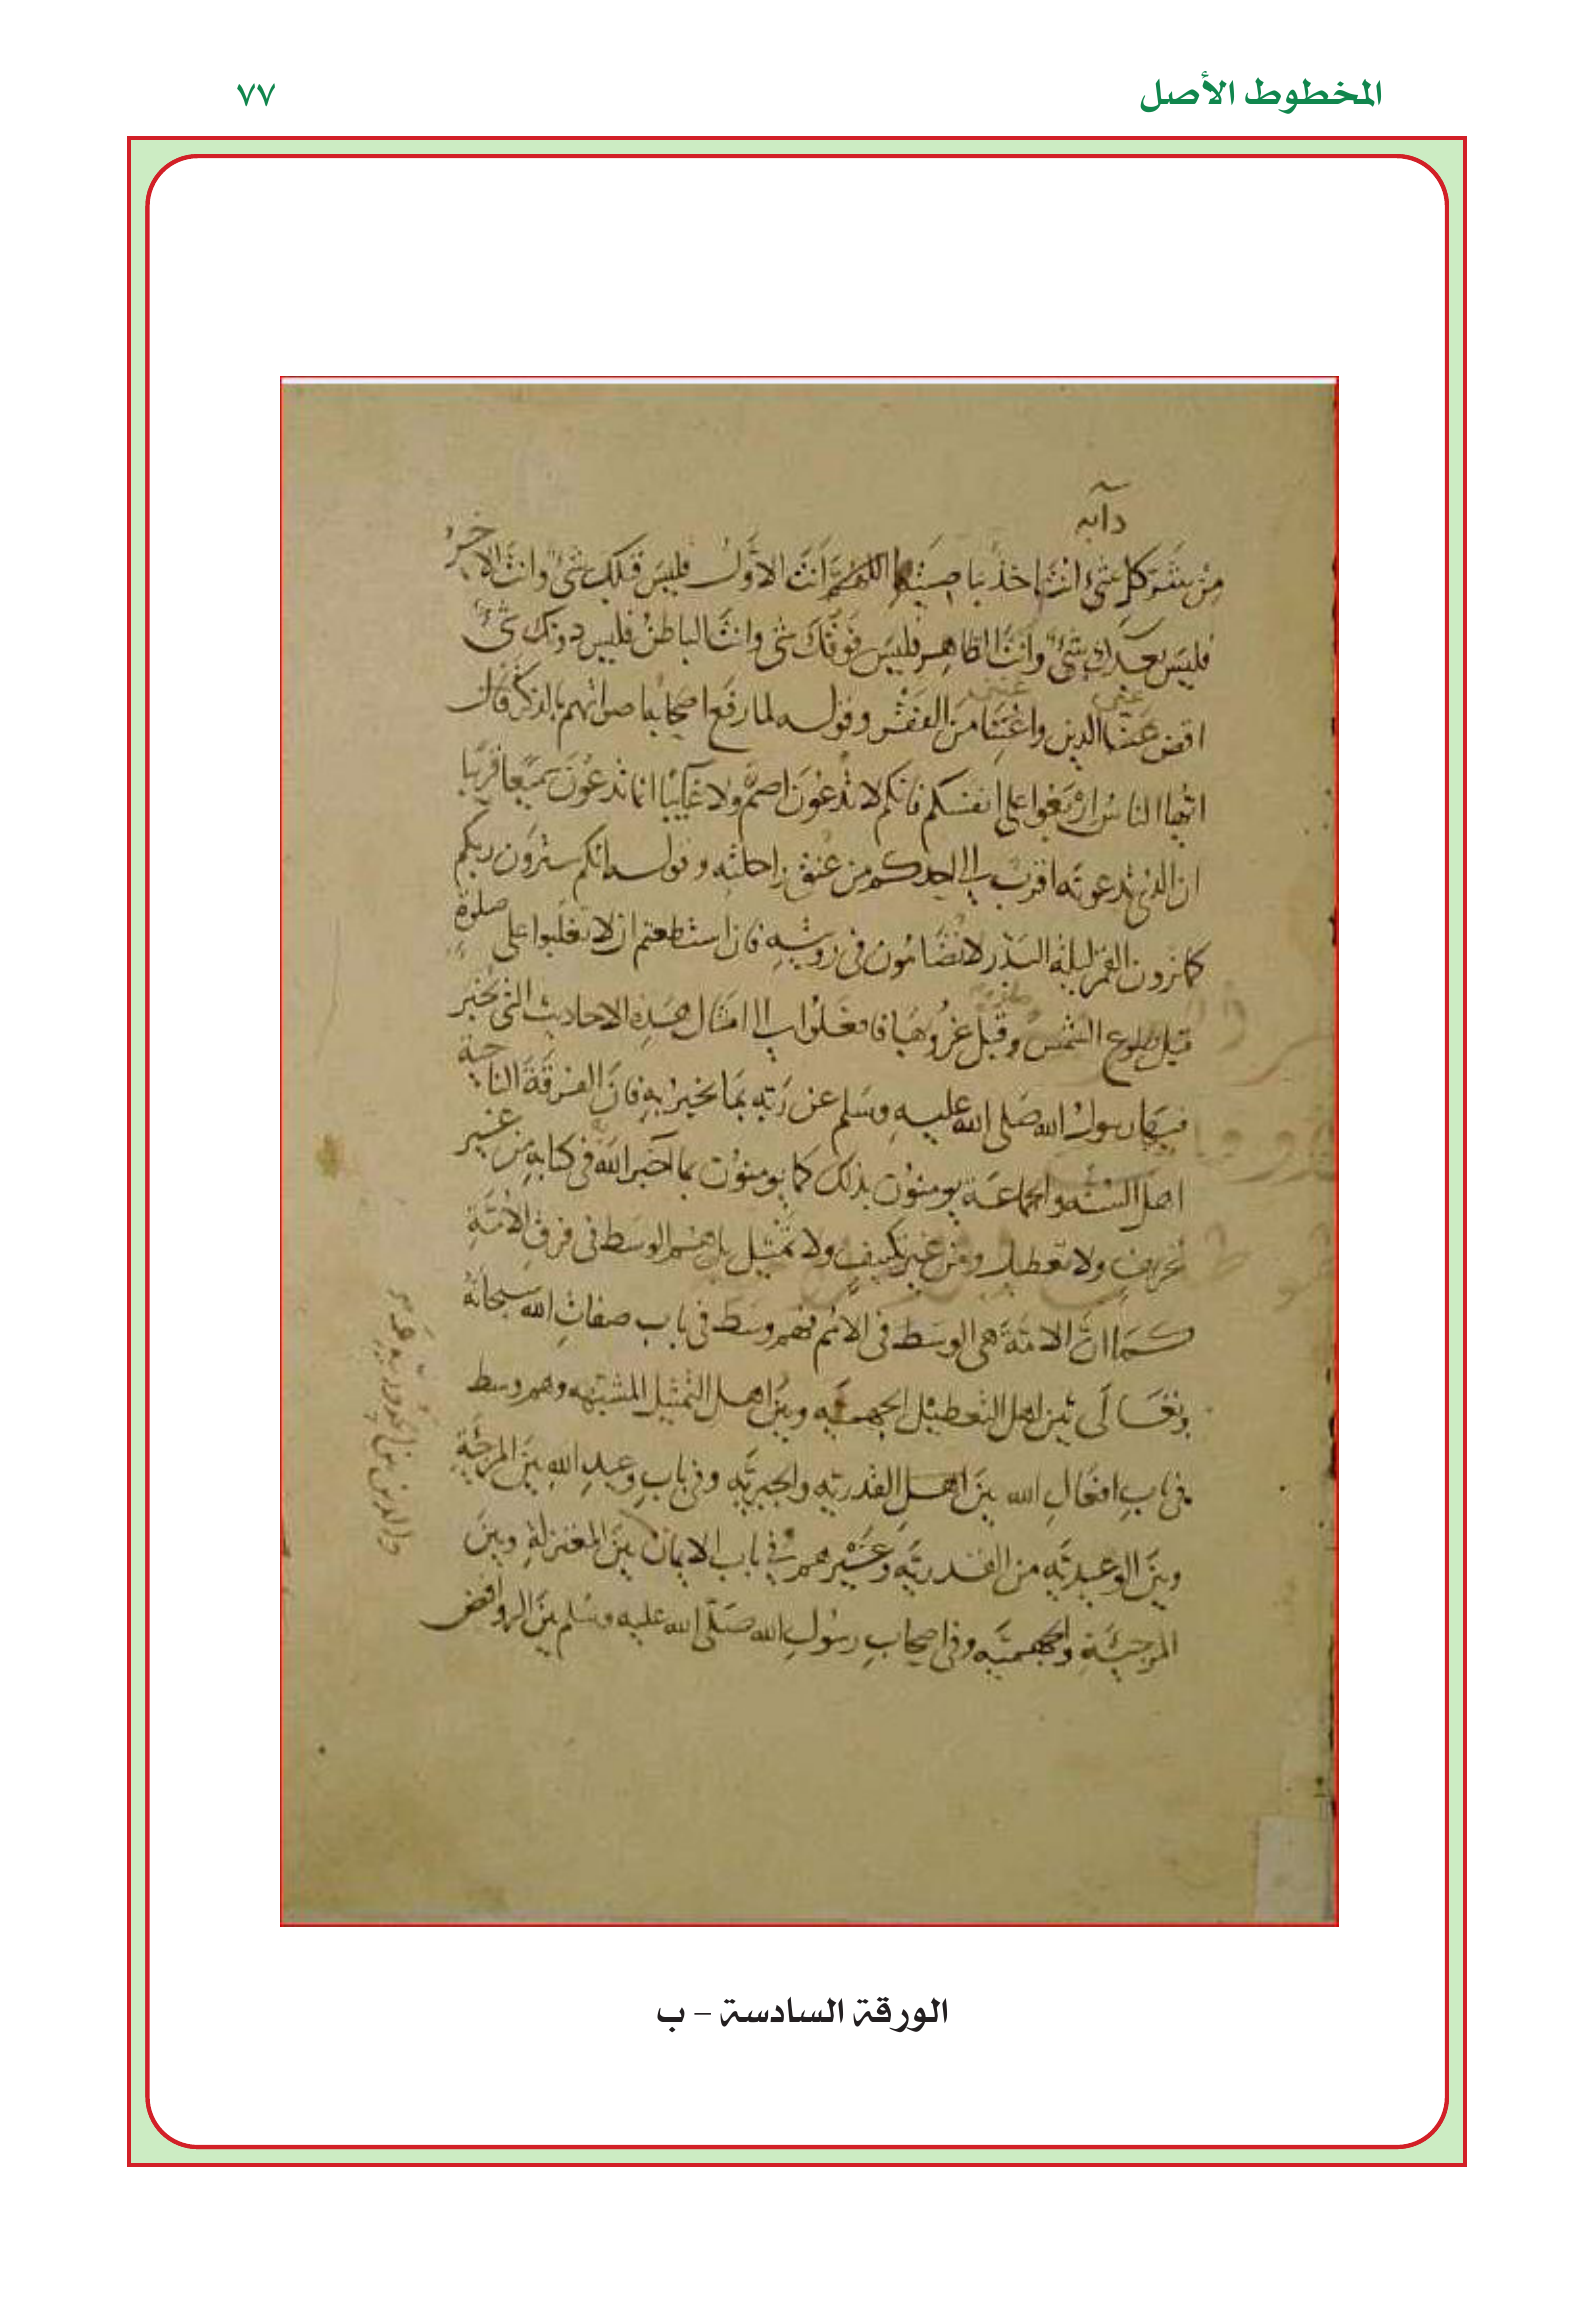 المخطوط الأصل
٧٧
دابه
من شر كل شيء انت اخذ بناصيتها اللهم أنت الأول فليس قبلك شيء وانت الاخر
فليس بعدك شيء وأنت الظاهر فليس فوقك شي وانت الباطن فليس دونك شيء
عني
اقض عنا الدين واغننا من الفقر وقوله لما رفع اصحابه اصواتهم بالذكر فقال
ايها الناس اربعوا على انفسكم فانكم لا تدعون اصم ولا غائبا انما تدعون سميعا قريبا
ان الذي تدعونه اقرب الى احدكم من عنق راحلته وقوله انكم سترون ربكم
كما ترون القمر ليلة البدر لا تضامون في رويته فان استطعتم ان لا تغلبوا على صلوة
قبل طلوع الشمس وقبل غروبها فافعلوا الى امثال هذه الاحاديث التي يخبر
فيها رسول الله صلى الله عليه وسلم عن ربه بما يخبر به فان الفرقة الناجية
اهل السنه والجماعة يومنون بذلك كما يومنون بما اخبر الله في كتابه من غير
تحريف ولا تعطيل ومن غير تكييف ولا تمثيل بل هم الوسط في فرق الأمة
كما ان الامة هي الوسط في الامم فهم وسط في باب صفات الله سبحانه
وتعالى بين اهل التعطيل الجهمية وبين اهل التمثيل المشبهه وهم وسط
في باب افعال الله بين اهل القدرية والجبرية وفي باب وعيد الله بين المرجئة
وبين الوعيدية من القدرية وغيرهم في باب الايمان بين المعتزلة وبين
المرجئة والجهمية وفي اصحاب رسول الله صلى الله عليه وسلم بين الروافض
الورقة السادسة – ب